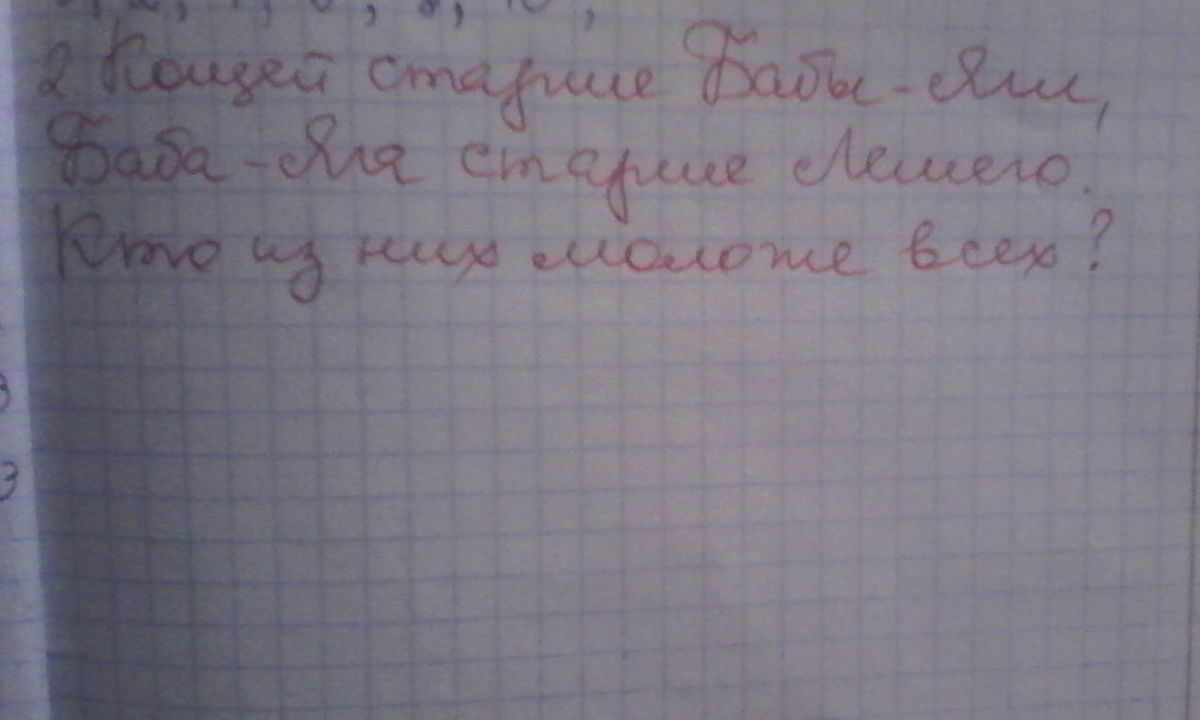 2. Кощей старше Бабы-Яги,
Баба-Яга старше Лешего.
Кто из них моложе всех?